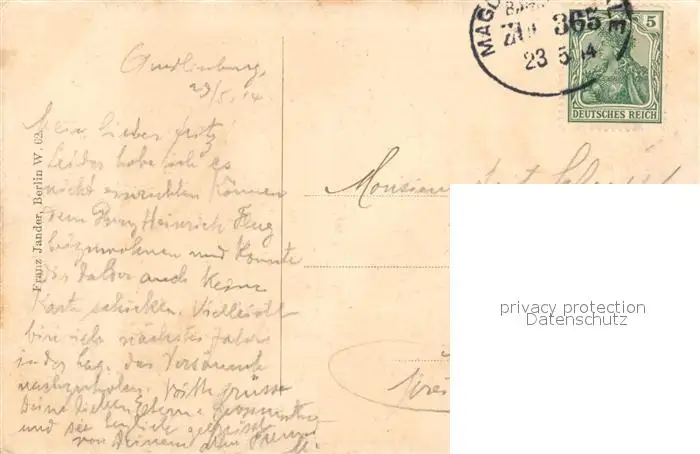 Quedlinburg,
23/5.14
Mein lieber Fritz!
Leider habe ich es
nicht einrichten können
dem Prinz Heinrich Flug
beizuwohnen und konnte
Dir daher auch keine
Karte schicken. Vielleicht
bin ich nächstes Jahr
in der Lage, das Versäumte
nachzuholen. Bitte grüsse
Deine lieben Eltern
und sei herzlich gegrüsst
von Deinem alten Freund
Franz Jander, Berlin W. 62.
MAGD
BAHN
ZUG 365
23 5 14
5
DEUTSCHES REICH
Monsieur
privacy protection
Datenschutz